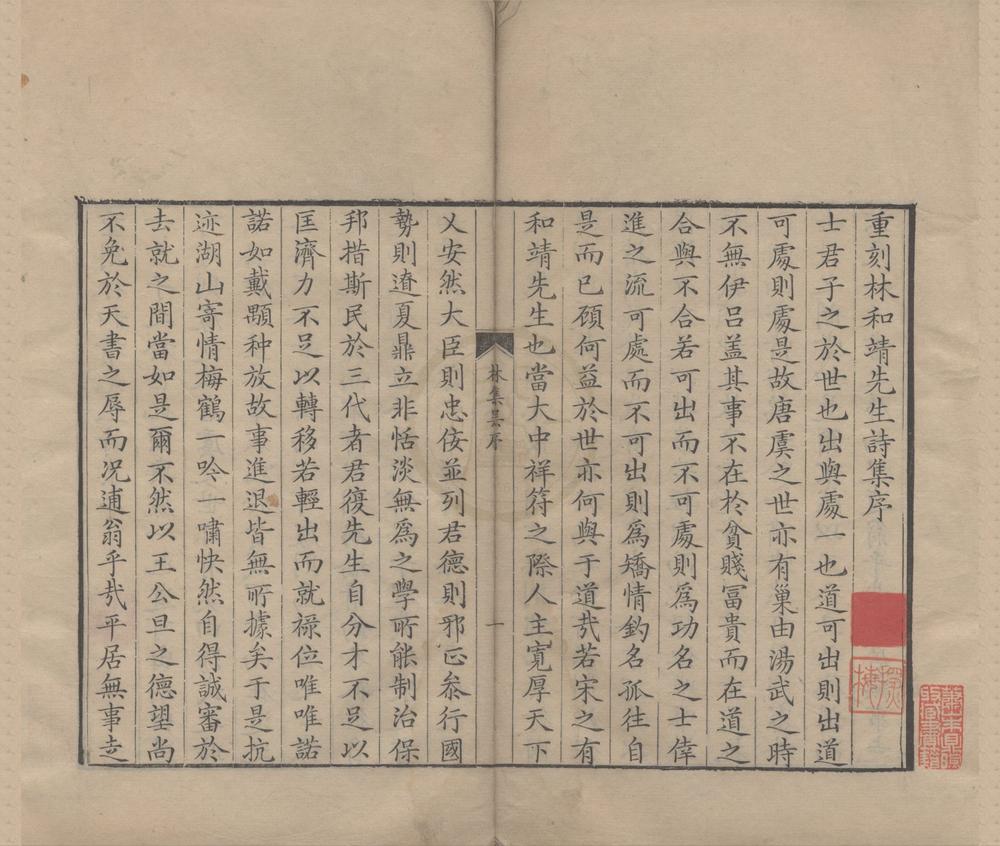 重刻林和靖先生詩集序
士君子之於世也出與處一也道可出則出道
可處則處是故唐虞之世亦有巢由湯武之時
不無伊呂盖其事不在於貧賤冨貴而在道之
合與不合若可出而不可處則爲功名之士倖
進之流可處而不可出則爲矯情釣名孤往自
是而已頋何益於世亦何與于道㢤若宋之有
和靖先生也當大中祥符之際人主寛厚天下
林集㬅序
一
乂安然大臣則忠佞並列君德則邪正叅行國
勢則遼夏鼎立非恬淡無爲之學所能制治保
邦措斯民於三代者君復先生自分才不足以
匡濟力不足以轉移若輕出而就禄位唯唯諾
諾如戴顒种放故事進退皆無所據矣于是抗
迹湖山寄情梅鶴一吟一嘯快然自得誠審於
去就之間當如是爾不然以王公旦之德望尚
不免於天書之辱而况逋翁乎㢤平居無事志